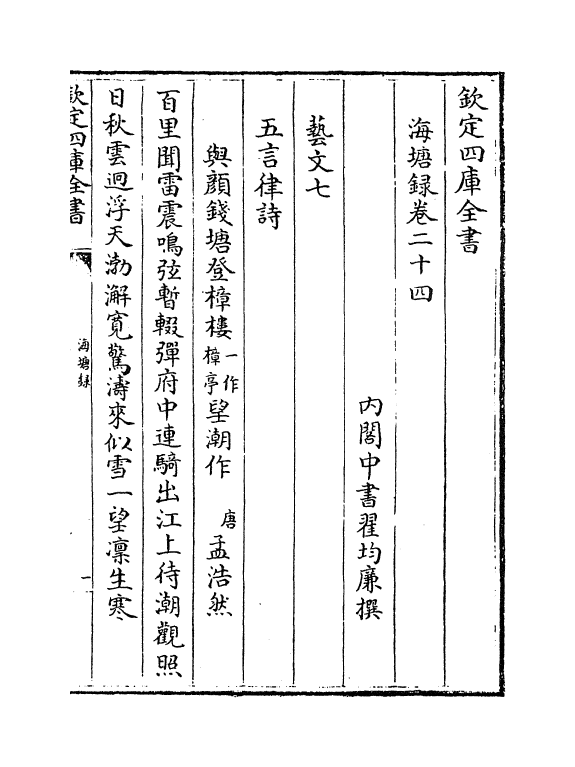 欽定四庫全書
海塘録卷二十四
内閣中書翟均廉撰
藝文七
五言律詩
與顔錢塘登樟樓一作樟亭望潮作 唐 孟浩然
百里聞雷震鳴弦暫輟彈府中連騎出江上待潮觀照
日秋雲迥浮天渤澥寛驚濤來似雪一望凛生寒
欽定四庫全書
海塘録
一